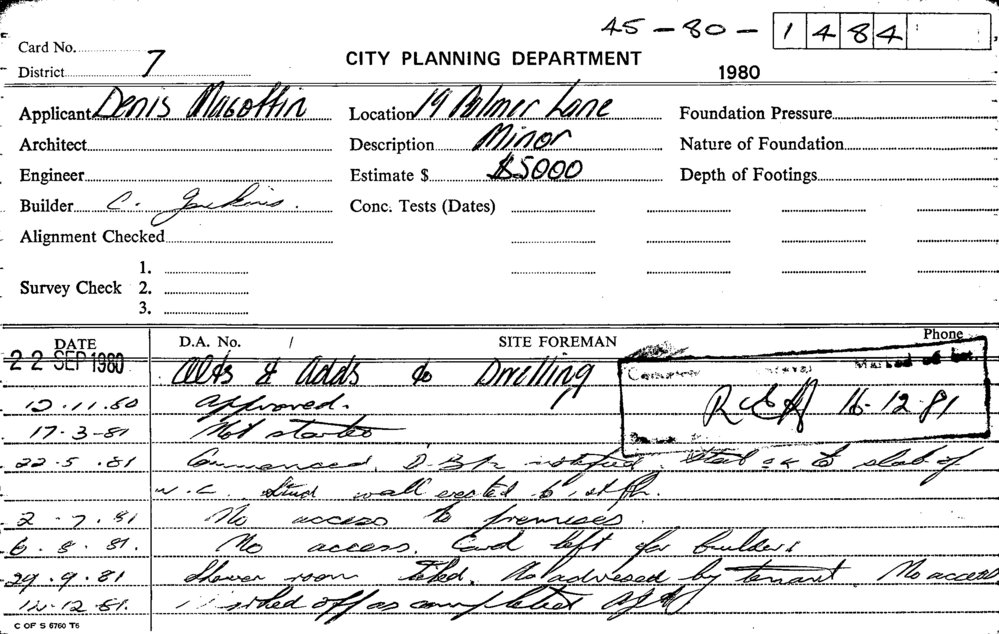 45-80-1484
Card No.
District 7
CITY PLANNING DEPARTMENT
1980
Applicant Denis Magoffin Location 19 Palmer Lane Foundation Pressure
Architect Description Minor Nature of Foundation
Engineer Estimate $ $5000 Depth of Footings
Builder C. Jenkins. Conc. Tests (Dates)
Alignment Checked
1.
Survey Check 2.
3.
DATE D.A. No. / SITE FOREMAN Phone
22 SEP 1980 Alts & Adds to Dwelling
12.11.80 Approved. 16-12-81
17-3-81 Not started
22.5.81 Commenced. notified. Steel ok to slab of
w.c. Stud wall erected to 1st flr.
2-7.81 No access to premises.
6.8.81. No access. Card left for builder
29.9.81 Shower room tiled. As advised by tenant. No access
12.81. off as completed
C OF S 6760 T6